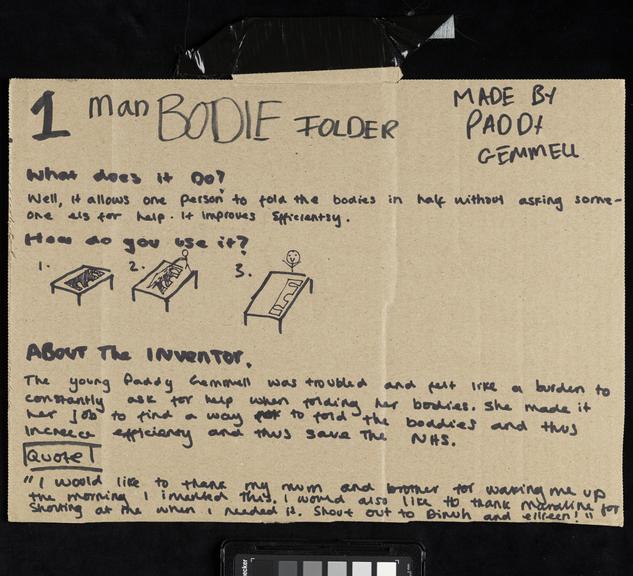 1 Man BODIE FOLDER
MADE BY
PADDY
GEMMELL
What does it Do?
Well, it allows one person to fold the bodies in half without asking some-
one els for help. It improves Efficientsy.
How do you use it?
1. 2. 3.
ABOUT The INVENTOR.
The young Paddy Gemmell was troubled and felt like a burden to
constantly ask for help when folding her bodies. She made it
her job to find a way to fold the boddies and thus
increece efficiency and thus save the NHS.
Quote!
"I would like to thank my mum and brother for waking me up
the morning I invented this. I would also like to thank for
shouting at the when I needed it. Shout out to and eileen!"